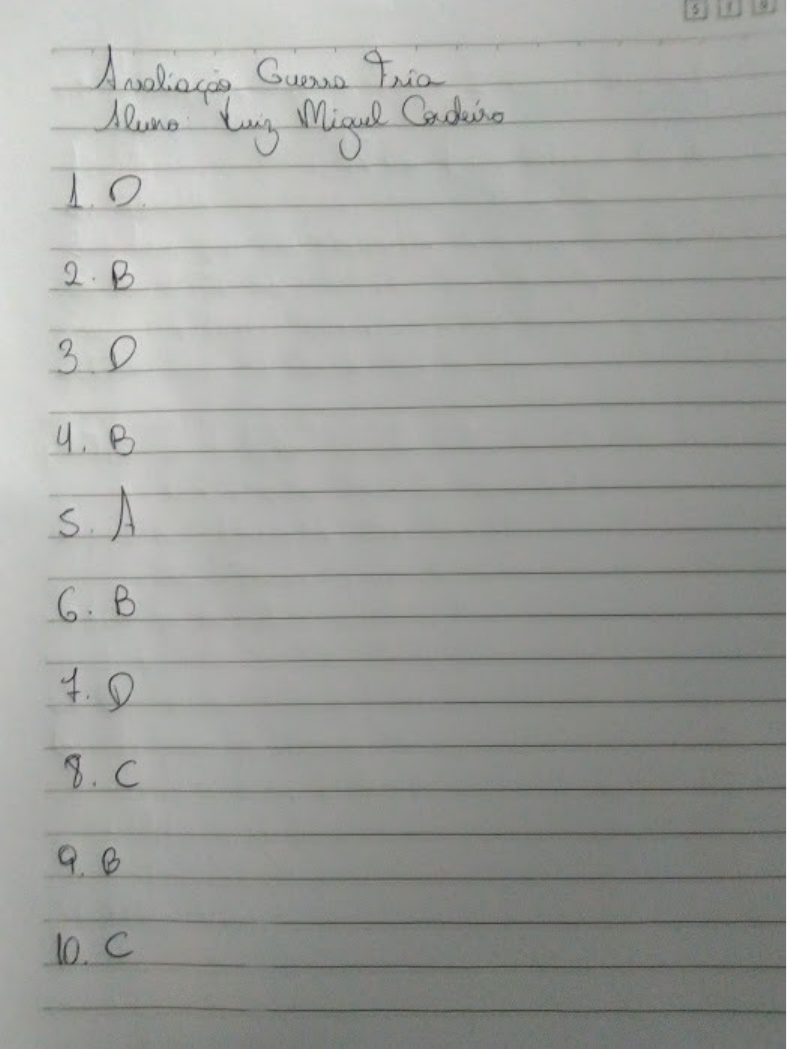 Avaliação Guerra Fria
Aluno: Luiz Miguel Cordeiro
1. D.
2. B
3. D
4. B
5. A
6. B
7. D
8. C
9. B
10. C